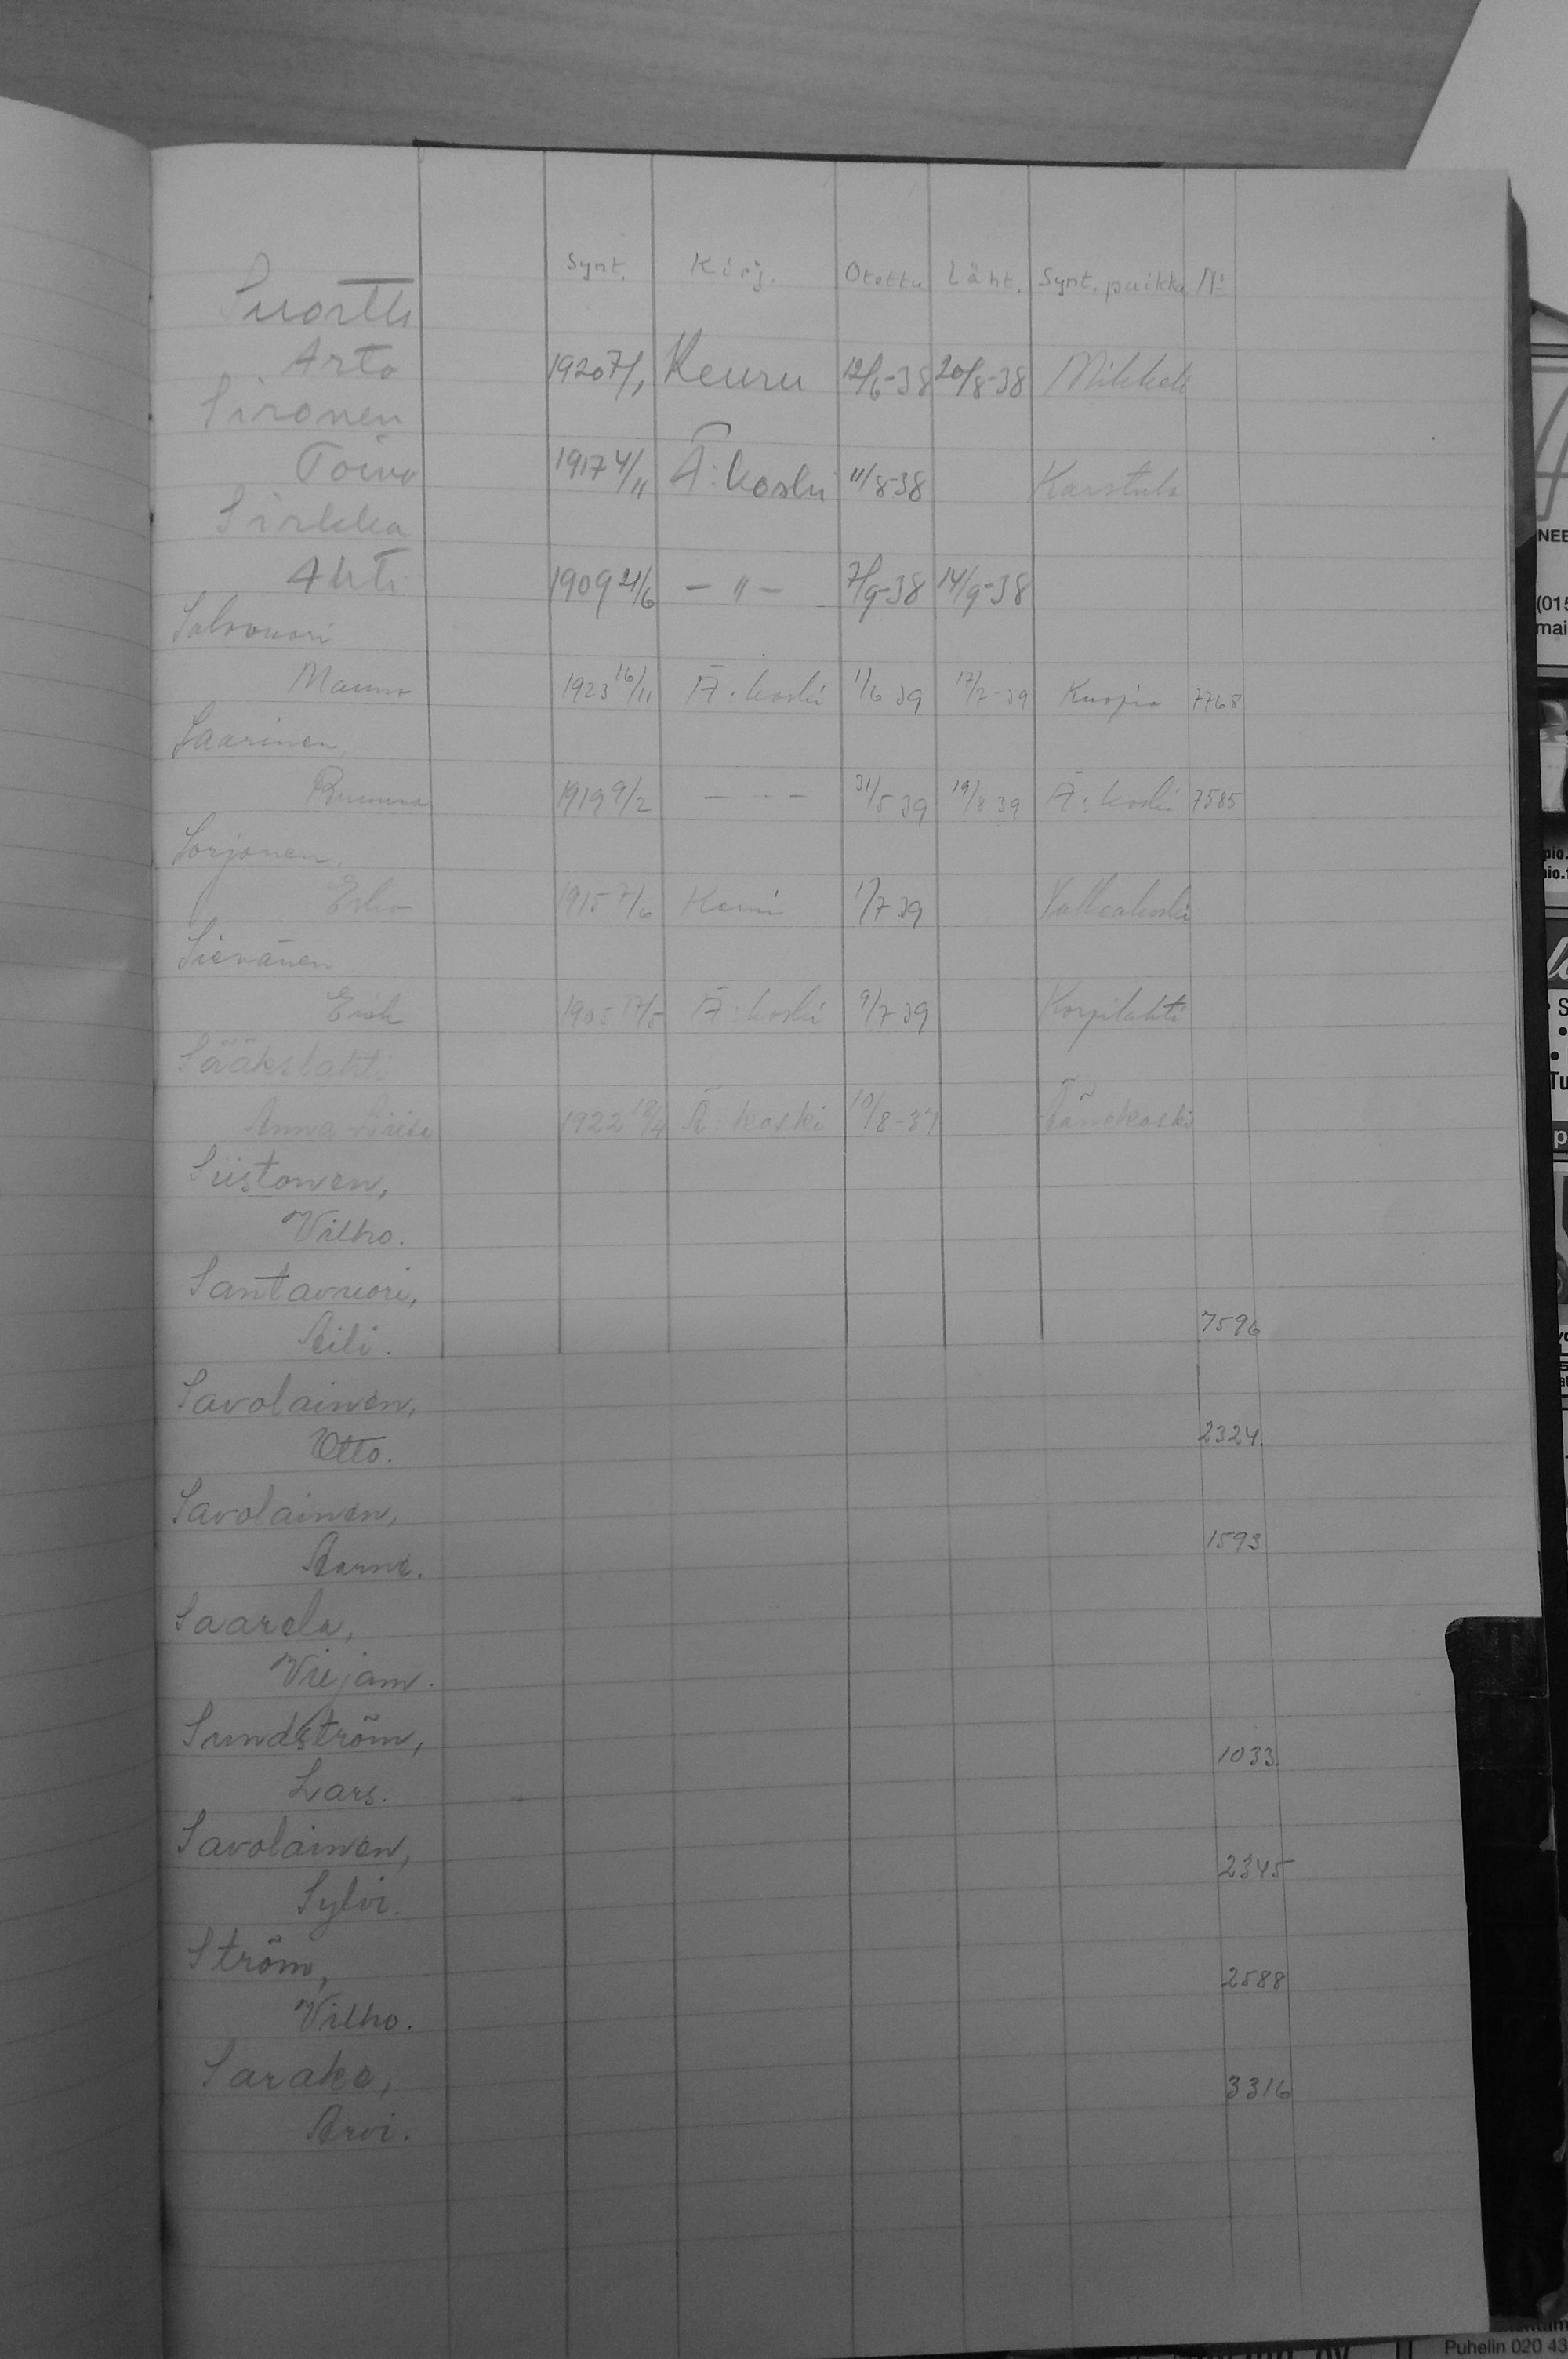 Synt. Kirj. Otettu Läht. Synt. paikka No
Suortti
Arto 1920 7/1 Keuru 12/6-38 20/8-38 Mikkeli
Sironen
Toivo 1917 4/11 Ä:koski 11/8-38 Karstula
Sirkka
Ahti 1909 21/6 – " – 7/9-38 14/9-38
Salovuori
Mauno 1923 16/11 Ä:koski 1/6 39 17/7-39 Kuopio 7768
Saarinen,
1919 9/2 – " – 31/5 39 19/8 39 Ä:koski 7585
Sorjonen,
Esko 1915 7/6 Kemi 1/7 39 Valkeakoski
Sievänen
1905 17/5 Ä:koski 9/7 39 Korpilahti
Sääkslahti
Anna-Liisa 1922 18/4 Ä:koski 10/8-39 Äänekoski
Siistonen,
Vilho.
Santavuori,
Aili. 7596
Savolainen,
Otto. 2324.
Savolainen,
Aarne. 1593
Saarela,
Viejam.
Sundström,
Lars. 1033.
Savolainen,
Sylvi. 2345
Ström,
Vilho. 2588
Sarake,
Arvi. 3316
NEE
(015
mai
pio.
Tu
Puhelin 020 43